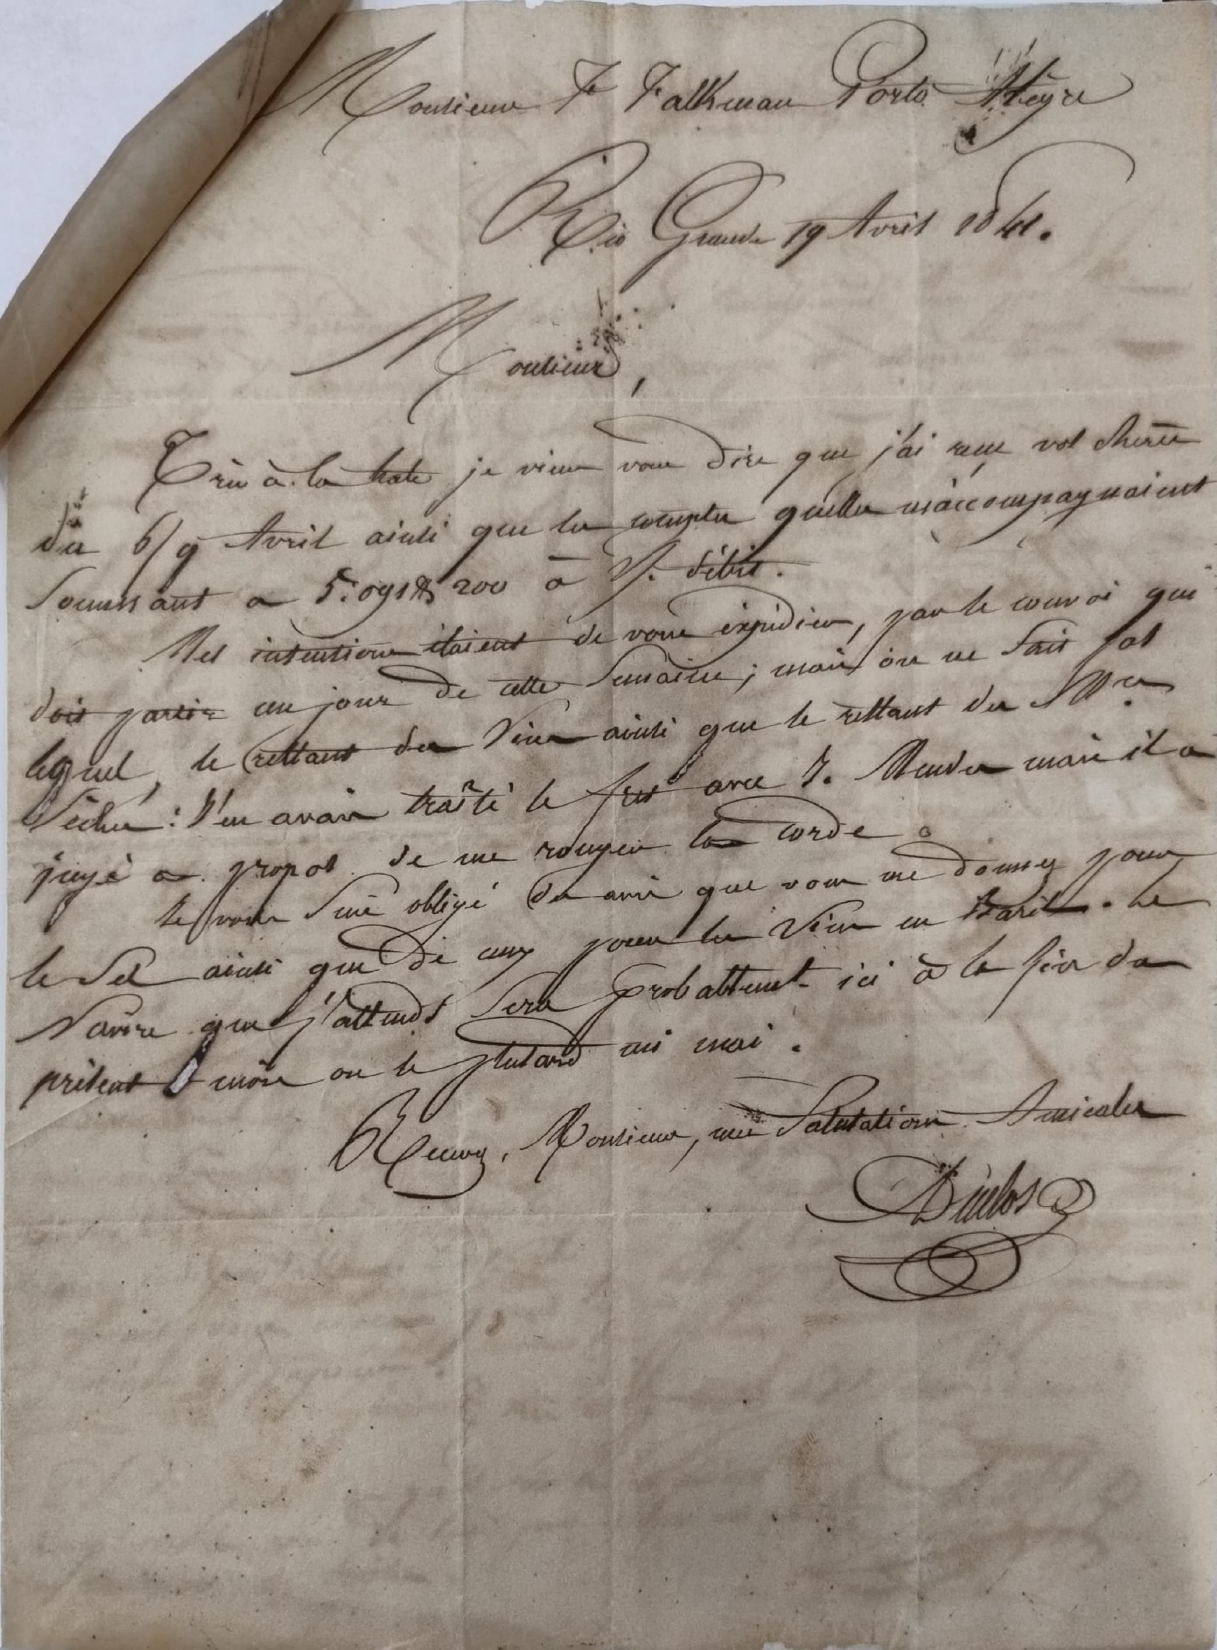 Monsieur F. Falkman Porto Alègre
Rio Grande 19 Avril 1841.
Monsieur,
Très à la hate je viens vous dire que j'ai reçu vos chères
du 6/9 Avril ainsi que les comptes qu'elles m'accompagnaient
Sommant a 5:091$200 à V. débit.
Mes intentions étaient de vous expédier, par le convoi qui
doit partir un jour de cette Semaine; mais on ne Sait pas
lequel, le restant des Vins ainsi que le restant des
Sèches: J'en avais traîté le fret avec J. Mendes mais il a
jugé a propos de me rompre la corde.
Je vous Suis obligé des avis que vous me donnez pour
le Sel ainsi que de ceux pour les Vins en baril. Le
Navire que j'attends Sera probablemt. ici à la fin du
présent mois ou le plutard mi mai.
Recevez, Monsieur, mes Salutations Amicales
Duclos